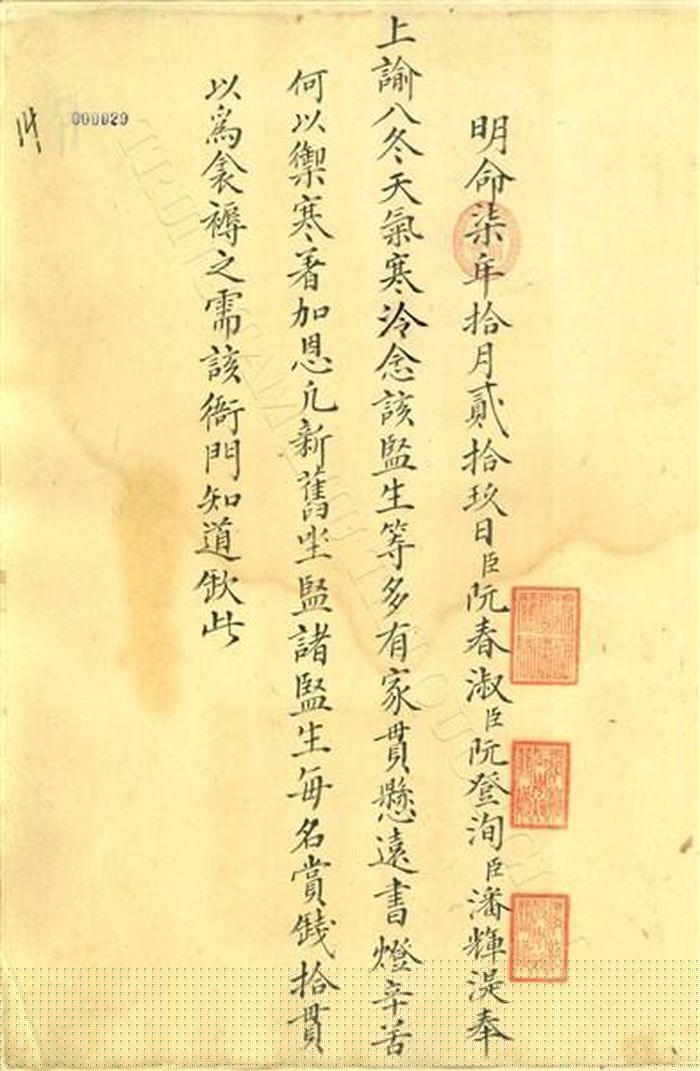 明命柒年拾月貳拾玖日臣阮春淑臣阮登洵臣潘輝湜奉
上諭入冬天氣寒冷念該監生等多有家貫懸遠書燈辛苦
何以禦寒著加恩凡新舊坐監諸監生每名賞錢拾貫
以爲衾褥之需該衙門知道欽此
000029